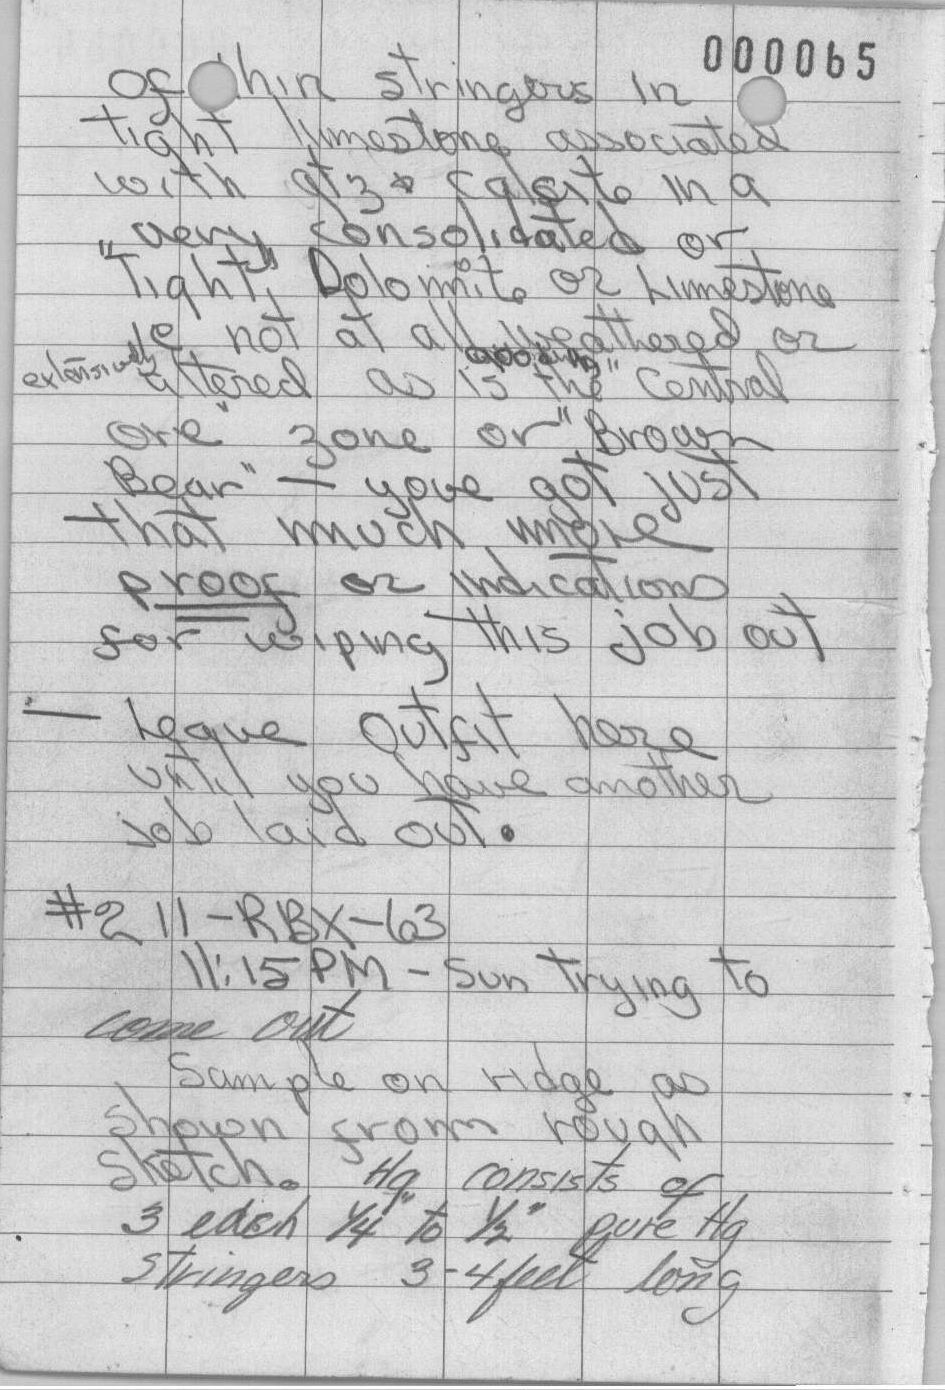 000065
Of thin stringers in
tight limestone associated
with qtz & calcite in a
very consolidated or
"Tight" Dolomite or Limestone
ie not at all weathered or
extensively altered as is the "Central
ore" zone or "Brown
Bear" — youve got just
that much more
proof or indications
for wiping this job out
— Leave outfit here
until you have another
job laid out.
#2 11-RBX-63
11:15 PM - Sun trying to
come out
Sample on ridge as
shown from rough
sketch. Hg consists of
3 each 1/4" to 1/2" pure Hg
stringers 3-4 feet long